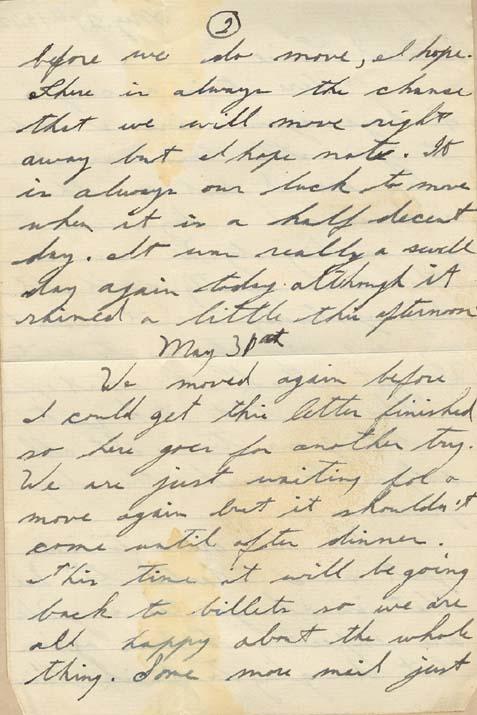 2
before we do move, I hope.
There is always the chance
that we will move right
away but I hope not. It
is always our luck to move
when it is a half decent
day. It was really a swell
day again today although it
rained a little this afternoon
May 31st
We moved again before
I could get this letter finished
so here goes for another try.
We are just waiting for a
move again but it shouldn't
come until after dinner.
This time it will be going
back to billets so we are
all happy about the whole
thing. Some more mail just